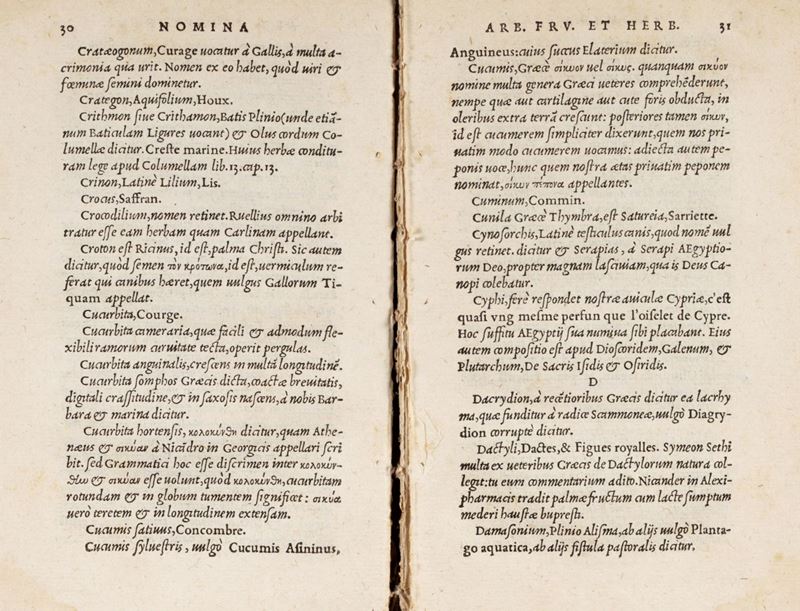 30 NOMINA
Cratæogonum, Curage uocatur à Gallis, à multa a-
crimonia qua urit. Nomen ex eo habet, quòd uiri &
fœminæ semini dominetur.
Crategon, Aquifolium, Houx.
Crithmon siue Crithamon, Batis Plinio (unde etiã-
num Baticulam Ligures uocant) & Olus cordum Co-
lumellæ dicitur. Creste marine. Huius herbæ conditu-
ram lege apud Columellam lib. 13. cap. 13.
Crinon, Latinè Lilium, Lis.
Crocus, Saffran.
Crocodilium, nomen retinet. Ruellius omnino arbi
tratur esse eam herbam quam Carlinam appellant.
Croton est Ricinus, id est, palma Christi. Sic autem
dicitur, quòd semen τὸν κρότωνα, id est, uermiculum re-
ferat qui canibus hæret, quem uulgus Gallorum Ti-
quam appellat.
Cucurbita, Courge.
Cucurbita cameraria, quæ facili & admodum fle-
xibili ramorum curuitate tecta, operit pergulas.
Cucurbita anguinalis, crescens in multã longitudinẽ.
Cucurbita somphos Græcis dicta, coactæ breuitatis,
digitali crassitudine, & in saxosis nascens, à nobis Bar-
bara & marina dicitur.
Cucurbita hortensis, κολοκύνθη dicitur, quam Athe-
næus & σικύαν à Nicãdro in Georgicis appellari scri
bit. sed Grammatici hoc esse discrimen inter κολοκύν-
θην & σικύαν esse uolunt, quòd κολοκύνθη, cucurbitam
rotundam & in globum tumentem significet: σικύα
uerò teretem & in longitudinem extensam.
Cucumis satiuus, Concombre.
Cucumis syluestris, uulgò Cucumis Asininus,
ARB. FRV. ET HERB. 31
Anguineus: cuius succus Elaterium dicitur.
Cucumis, Græcè σίκυον uel σίκυς. quanquam σικύον
nomine multa genera Græci ueteres comprehẽderunt,
nempe quæ aut cartilagine aut cute foris obducta, in
oleribus extra terrã crescunt: posteriores tamen σίκυν,
id est cucumerem simpliciter dixerunt, quem nos pri-
uatim modo cucumerem uocamus: adiecta autem pe-
ponis uoce, hunc quem nostra ætas priuatim peponem
nominat, σίκυν πέπονα appellantes.
Cuminum, Commin.
Cunila Græcè Thymbra, est Satureia, Sarriette.
Cynosorchis, Latinè testiculus canis, quod nomẽ uul
gus retinet. dicitur & Serapias, à Serapi AEgyptio-
rum Deo, propter magnam lasciuiam, qua is Deus Ca-
nopi colebatur.
Cyphi, ferè respõdet nostræ auiculæ Cypriæ, c'est
quasi vng mesme perfun que l'oiselet de Cypre.
Hoc suffitu AEgyptij sua numina sibi placabant. Eius
autem compositio est apud Dioscoridem, Galenum, &
Plutarchum, De Sacris Isidis & Osiridis.
D
Dacrydion, à recẽtioribus Græcis dicitur ea lacrhy
ma, quæ funditur à radice Scammoneæ, uulgò Diagry-
dion corruptè dicitur.
Dactyli, Dactes, & Figues royalles. Symeon Sethi
multa ex ueteribus Græcis de Dactylorum natura col-
legit: tu eum commentarium adito. Nicander in Alexi-
pharmacis tradit palmæ fructum cum lacte sumptum
mederi haustæ bupresti.
Damasonium, Plinio Alisma, ab alijs uulgò Planta-
go aquatica, ab alijs fistula pastoralis dicitur.